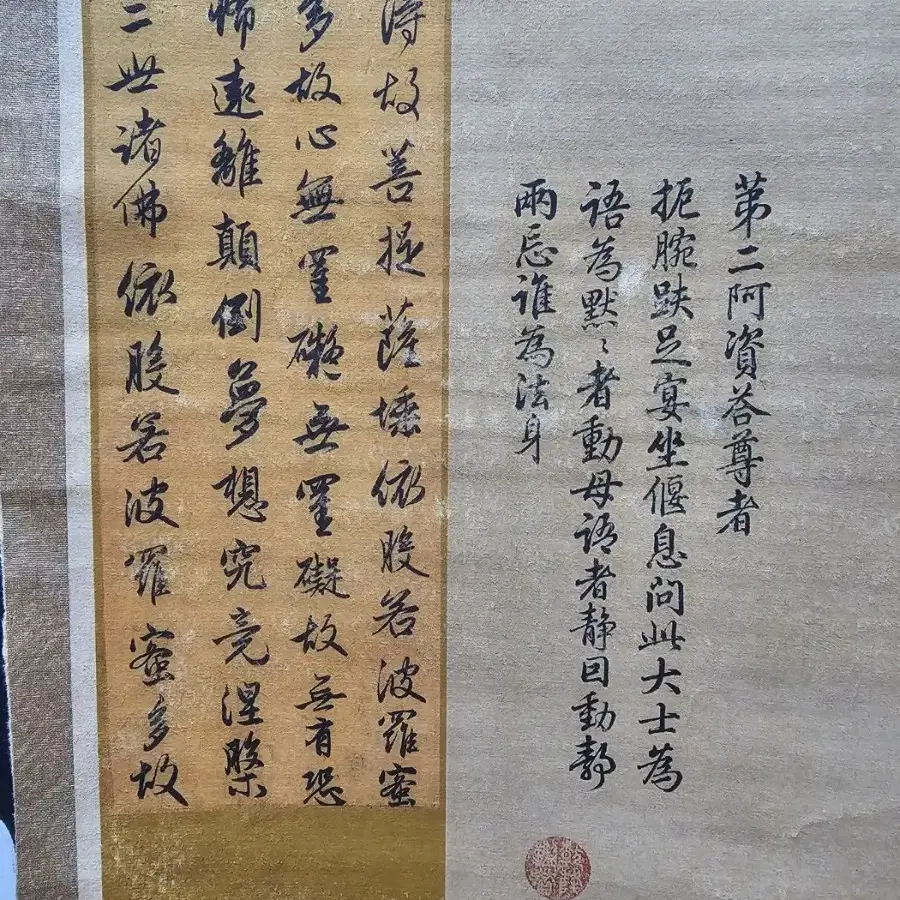 第二阿資荅尊者
扼腕趺足宴坐偃息問此大士為
語為默〻者動母語者静囙動静
兩忘誰為法身
得故菩提薩埵依般若波羅蜜
多故心無罣礙無罣礙故無有恐
怖遠離顛倒夢想究竟涅槃
三世諸佛依般若波羅蜜多故